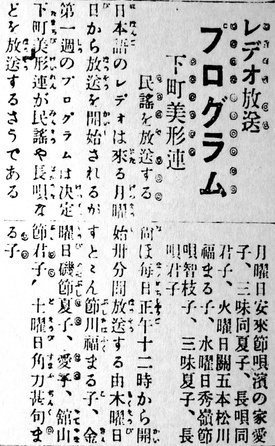 レデオ放送
プログラム
下町美形連
民謠を放送する
日本語のレデオは來る月曜
日から放送を開始されるが
第一週のプログラムは決定
下町美形連が民謠や長唄な
どを放送するさうである
月曜日安來節唄濱の家愛
子、三味同夏子、長唄同
君子、火曜日關五本松川
福まる子、水曜日秀嶺節
唄智枝子、三味夏子、長
唄君子
尙ほ每日正午十二時から開
始卅分間放送する由木曜日
すととん節川福まる子、金
曜日磯節夏子、愛子、舘山
節君子、土曜日角力甚句ま
る子